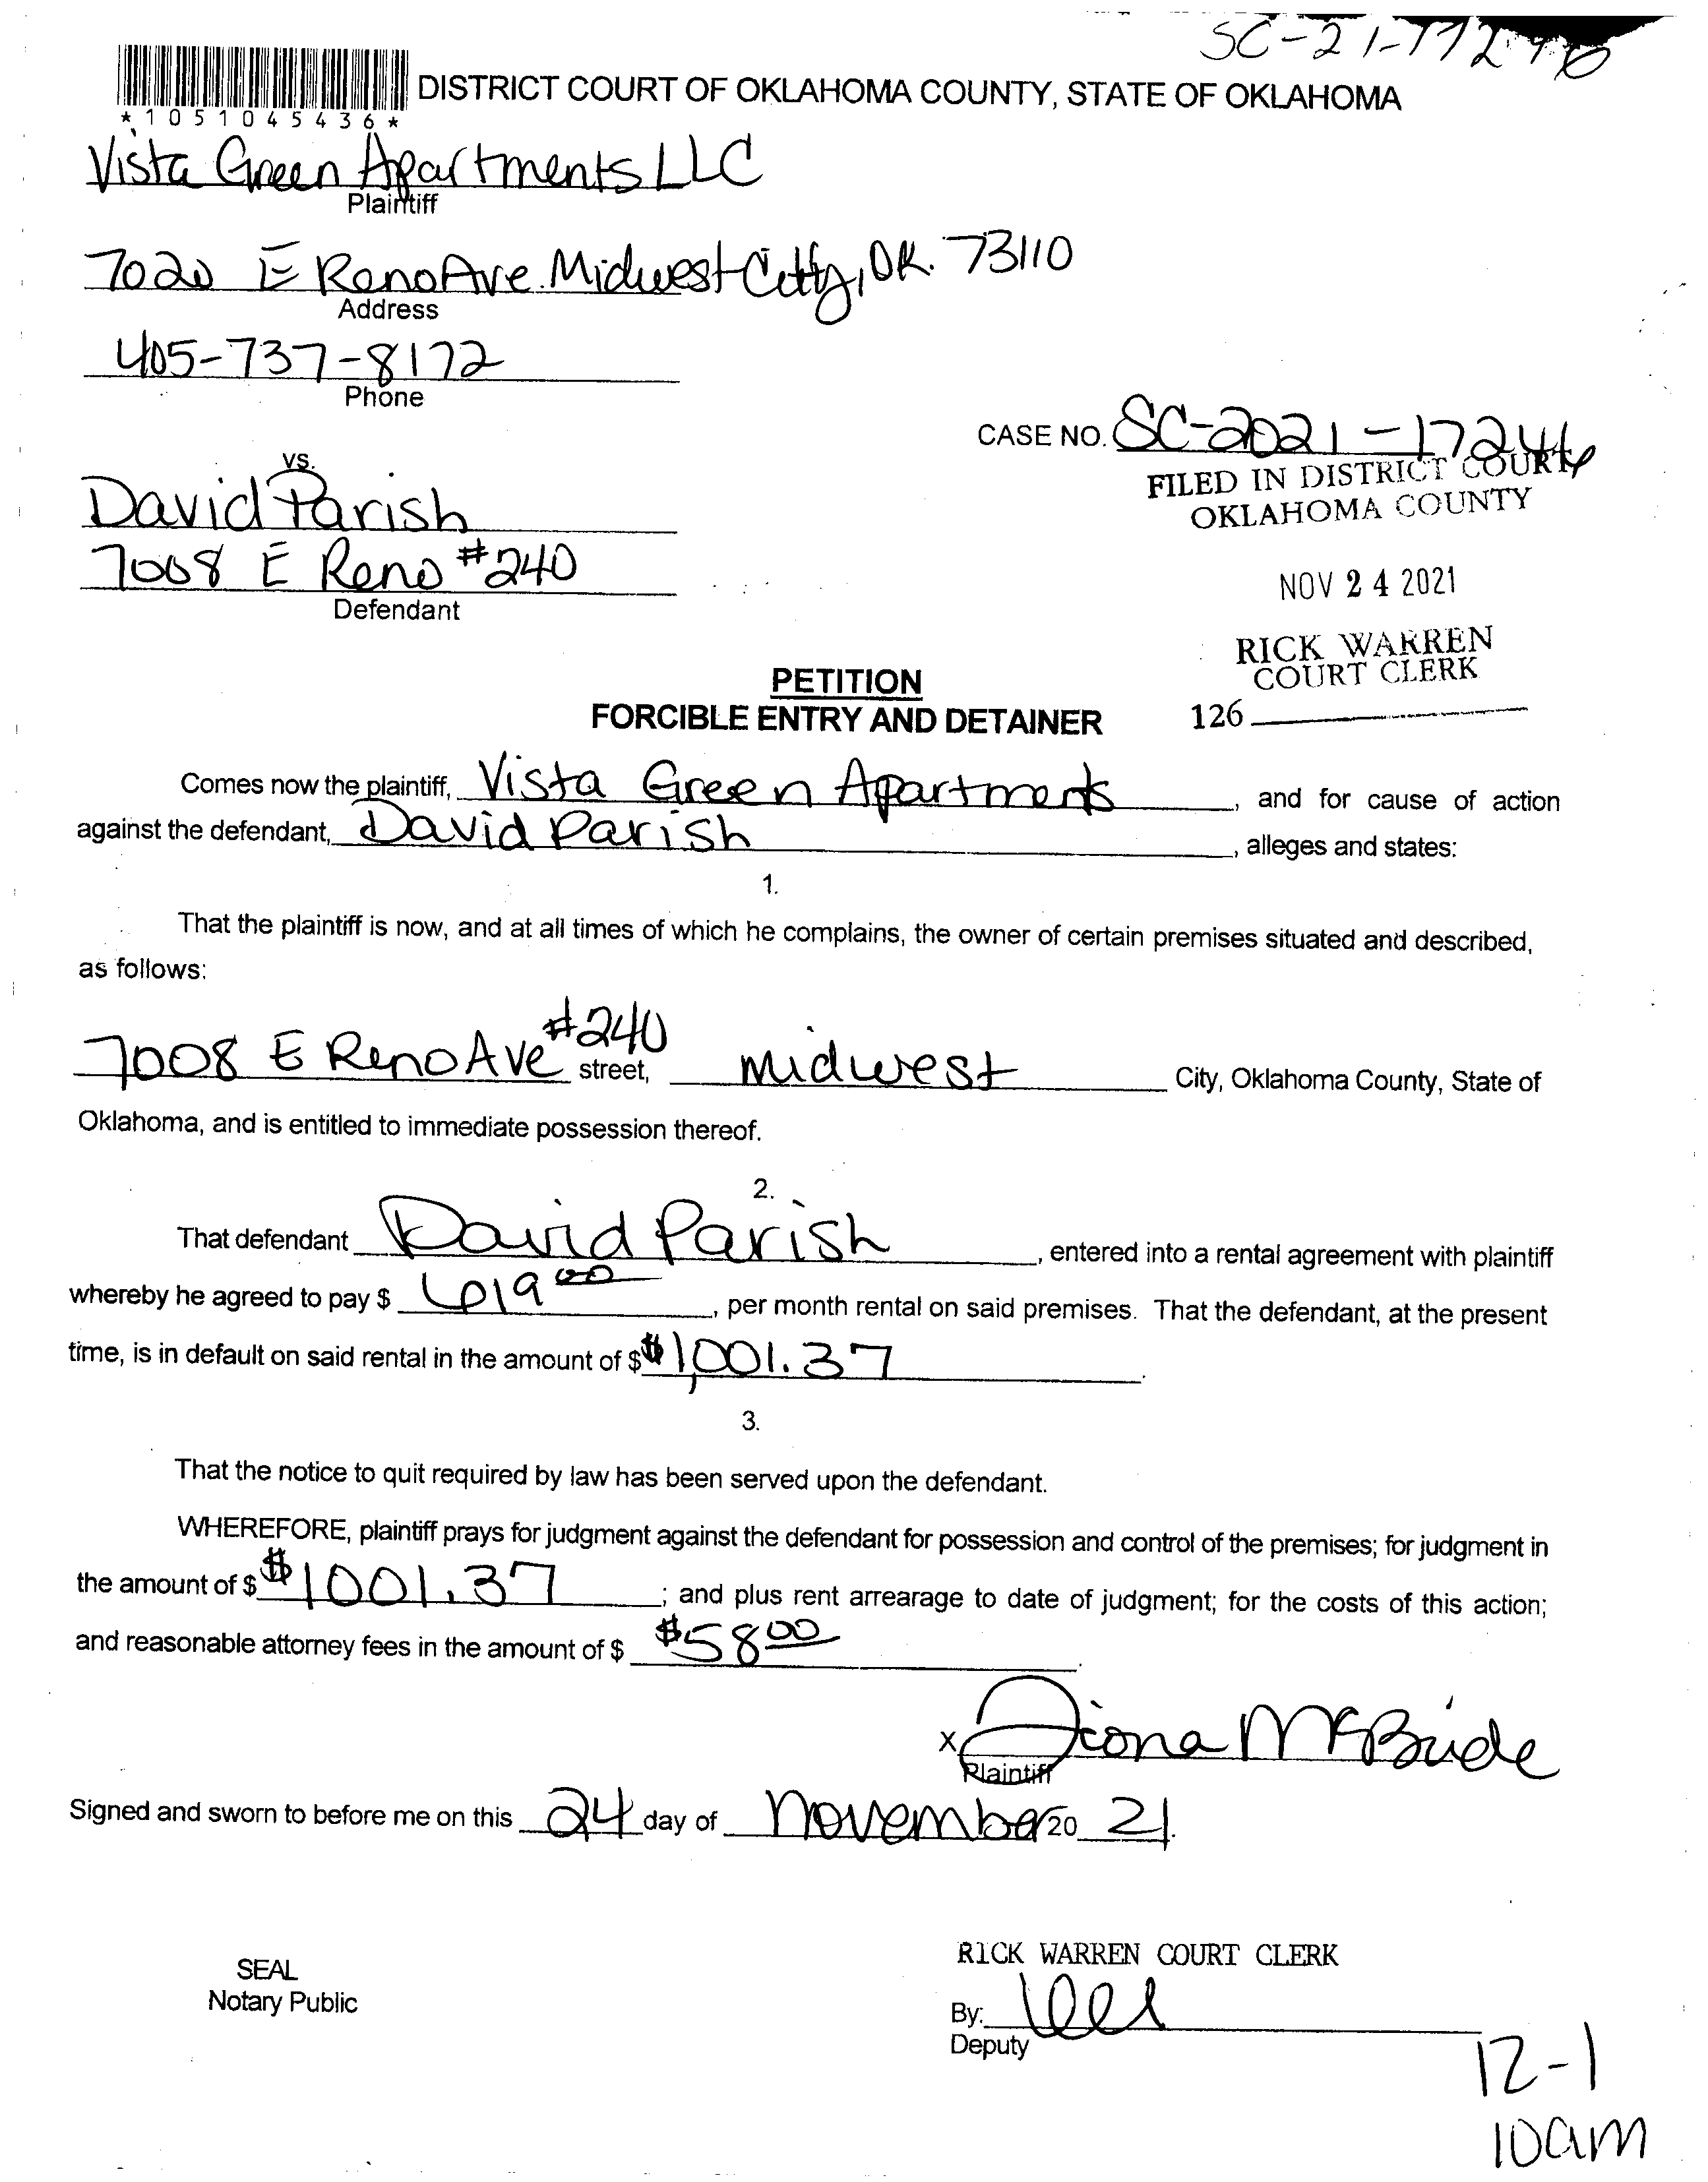 SC-21-17246
DISTRICT COURT OF OKLAHOMA COUNTY, STATE OF OKLAHOMA
*1051045436*
Vista Green Apartments LLC
Plaintiff
7020 E Reno Ave. Midwest City, OK. 73110
Address
405-737-8172
Phone
CASE NO. SC-2021-17246
FILED IN DISTRICT COURT
OKLAHOMA COUNTY
vs.
David Parish
7008 E Reno #240
Defendant
NOV 24 2021
RICK WARREN
COURT CLERK
126
PETITION
FORCIBLE ENTRY AND DETAINER
Comes now the plaintiff, Vista Green Apartments, and for cause of action
against the defendant, David Parish, alleges and states:
1.
That the plaintiff is now, and at all times of which he complains, the owner of certain premises situated and described,
as follows:
7008 E Reno Ave #240 street, midwest City, Oklahoma County, State of
Oklahoma, and is entitled to immediate possession thereof.
2.
That defendant David Parish, entered into a rental agreement with plaintiff
whereby he agreed to pay $ 619 00, per month rental on said premises. That the defendant, at the present
time, is in default on said rental in the amount of $ $1,001.37.
3.
That the notice to quit required by law has been served upon the defendant.
WHEREFORE, plaintiff prays for judgment against the defendant for possession and control of the premises; for judgment in
the amount of $ $1001.37; and plus rent arrearage to date of judgment; for the costs of this action;
and reasonable attorney fees in the amount of $ $58 00.
x Diona McBride
Plaintiff
Signed and sworn to before me on this 24 day of november 20 21.
SEAL
Notary Public
RICK WARREN COURT CLERK
By:
Deputy
12-1
10am